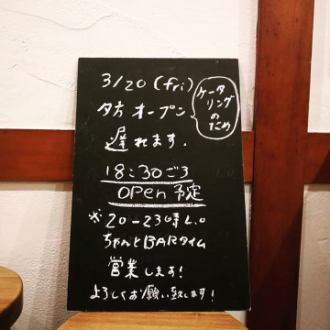 3/20 (fri)
ケータ
リング
の
ため
夕方 オープン
遅れます.
18:30ごろ
OPEN 予定
※20-23時L.O
ちゃんとBARタイム
営業します!
よろしくお願い致します!